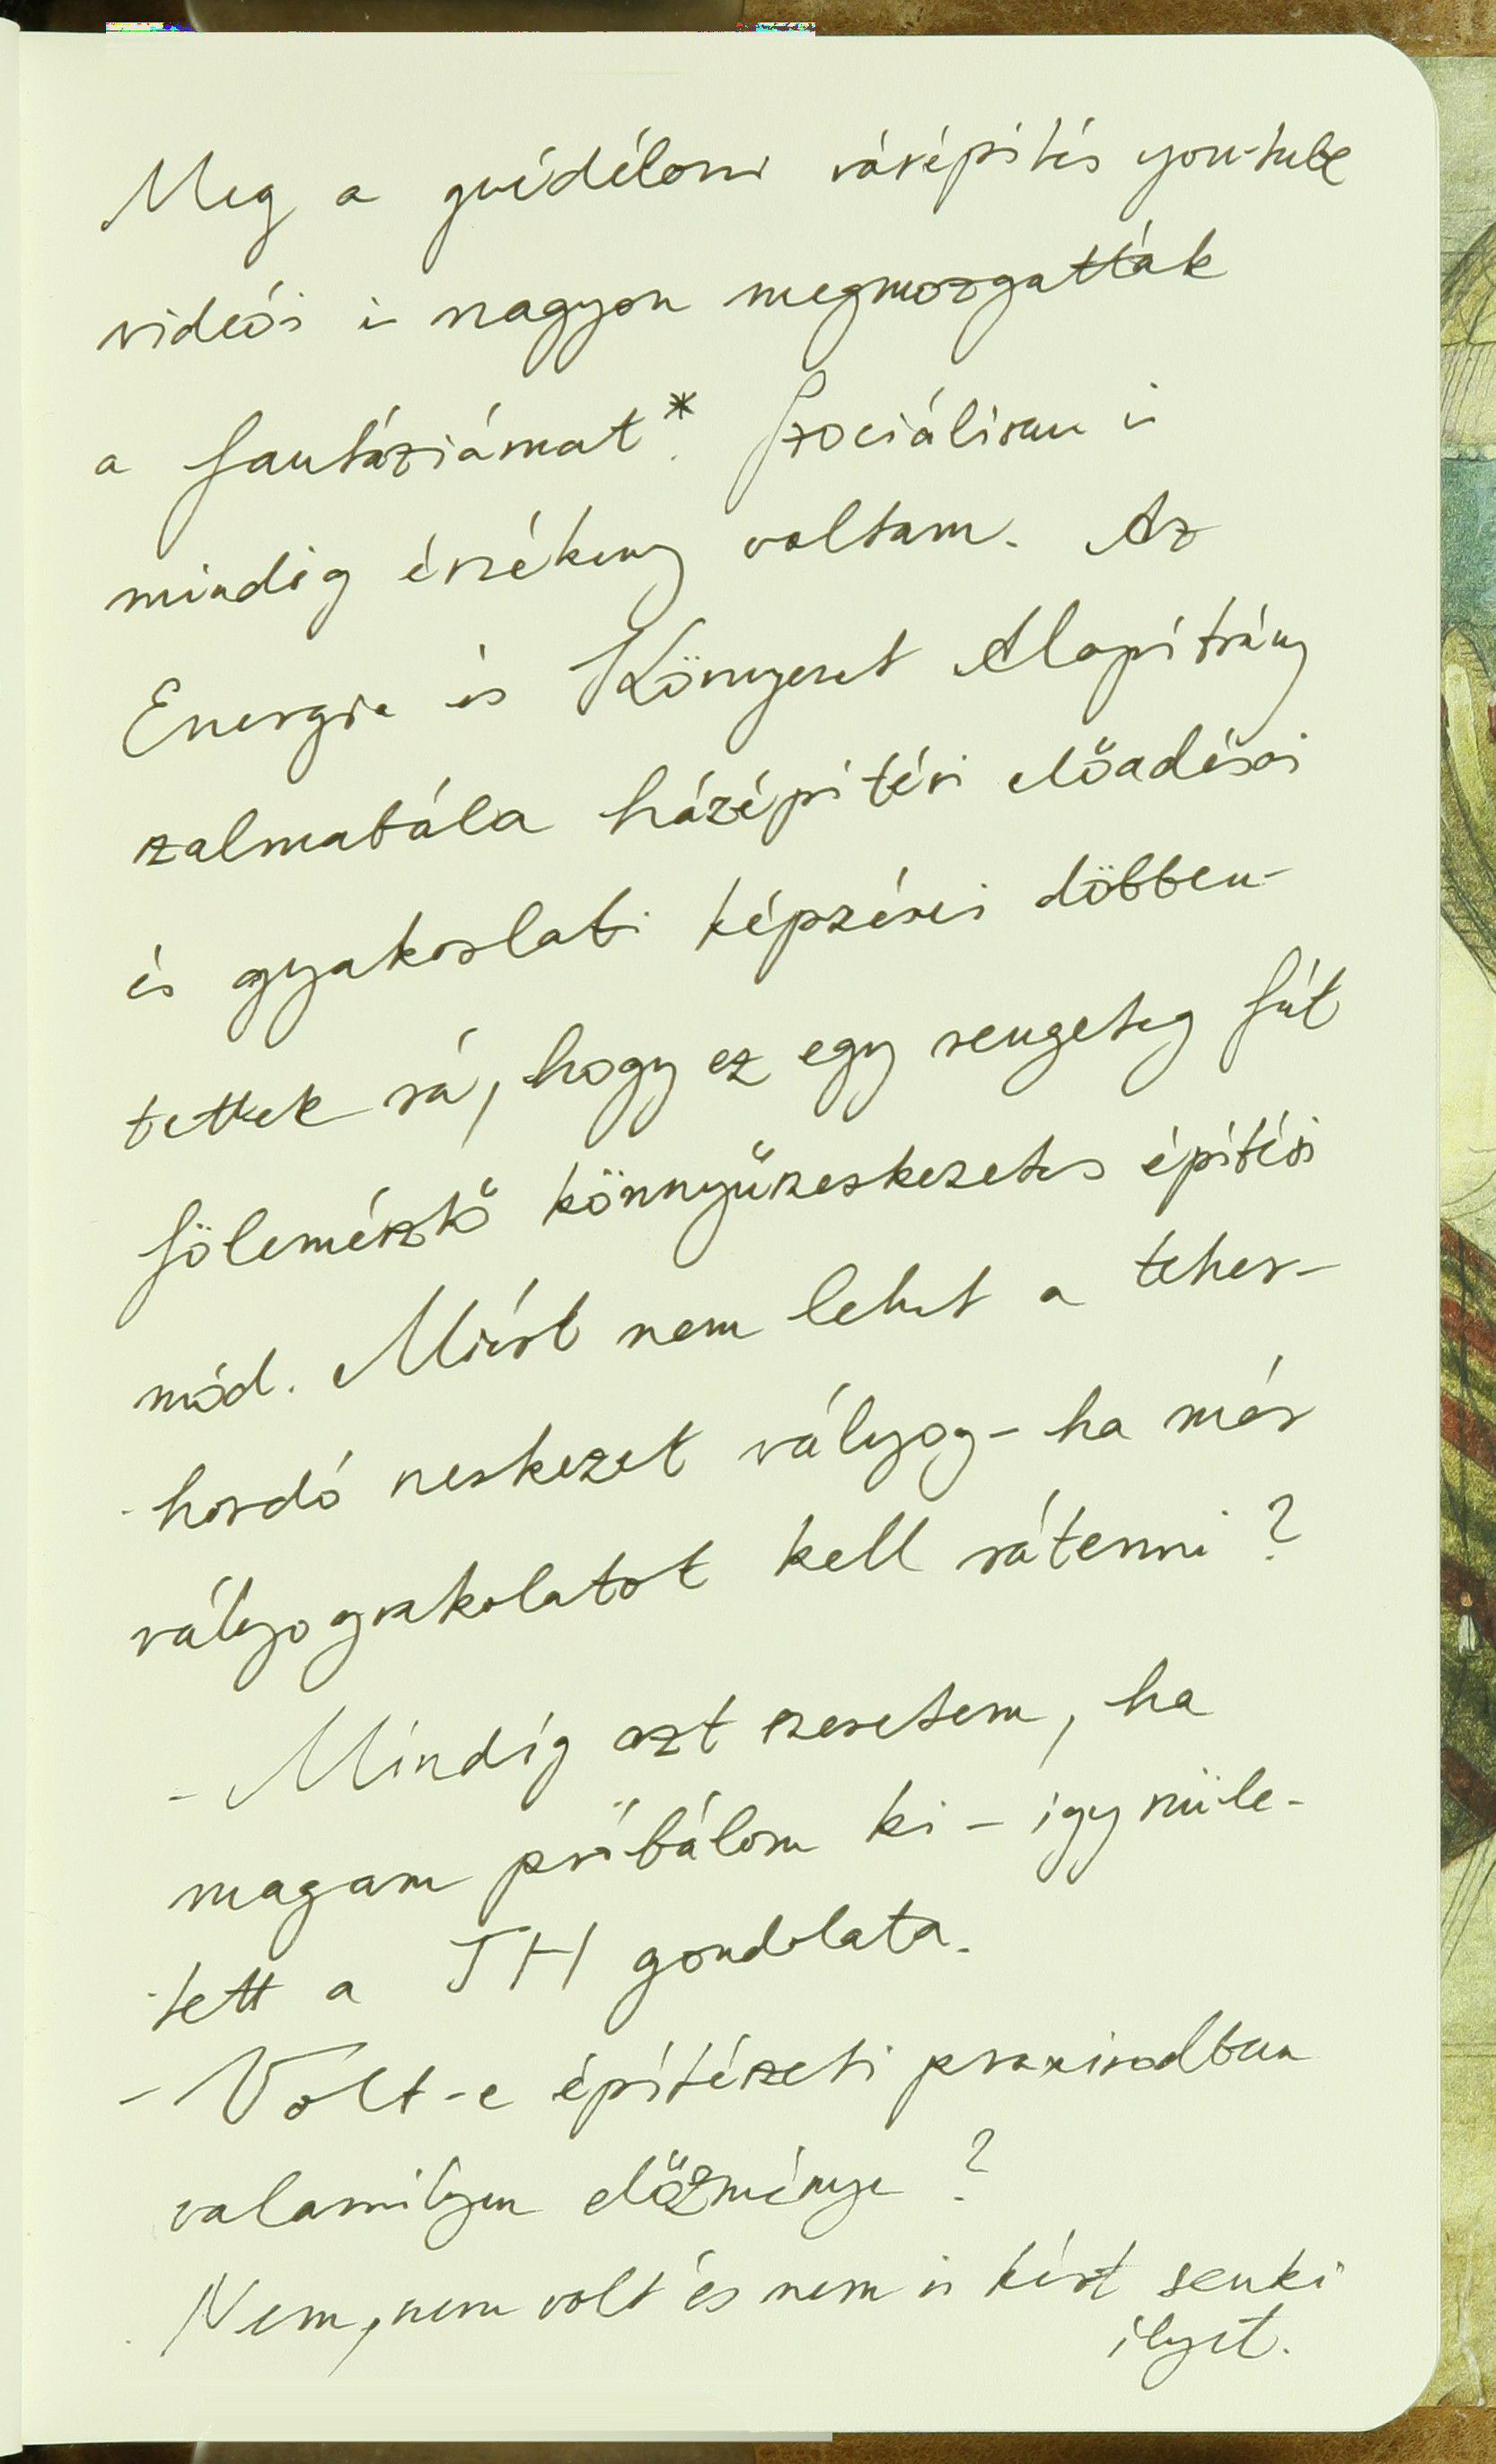 Meg a guédéloni várépítés you-tube
videói is nagyon megmozgatták
a fantáziámat*. Szociálisan is
mindig érzékeny voltam. Az
Energia és Környezet Alapítvány
szalmabála házépítési előadásai
és gyakorlati képzései döbben-
tettek rá, hogy ez egy rengeteg fát
fölemésztő könnyűszerkezetes építési
mód. Miért nem lehet a teher-
hordó szerkezet vályog - ha már
vályogvakolatot kell rátenni?
- Mindíg azt szeretem, ha
magam próbálom ki - így szüle-
tett a TH gondolata.
- Volt-e építészeti praxisodban
valamilyen előzménye?
Nem, nem volt és nem is kért senki
ilyet.